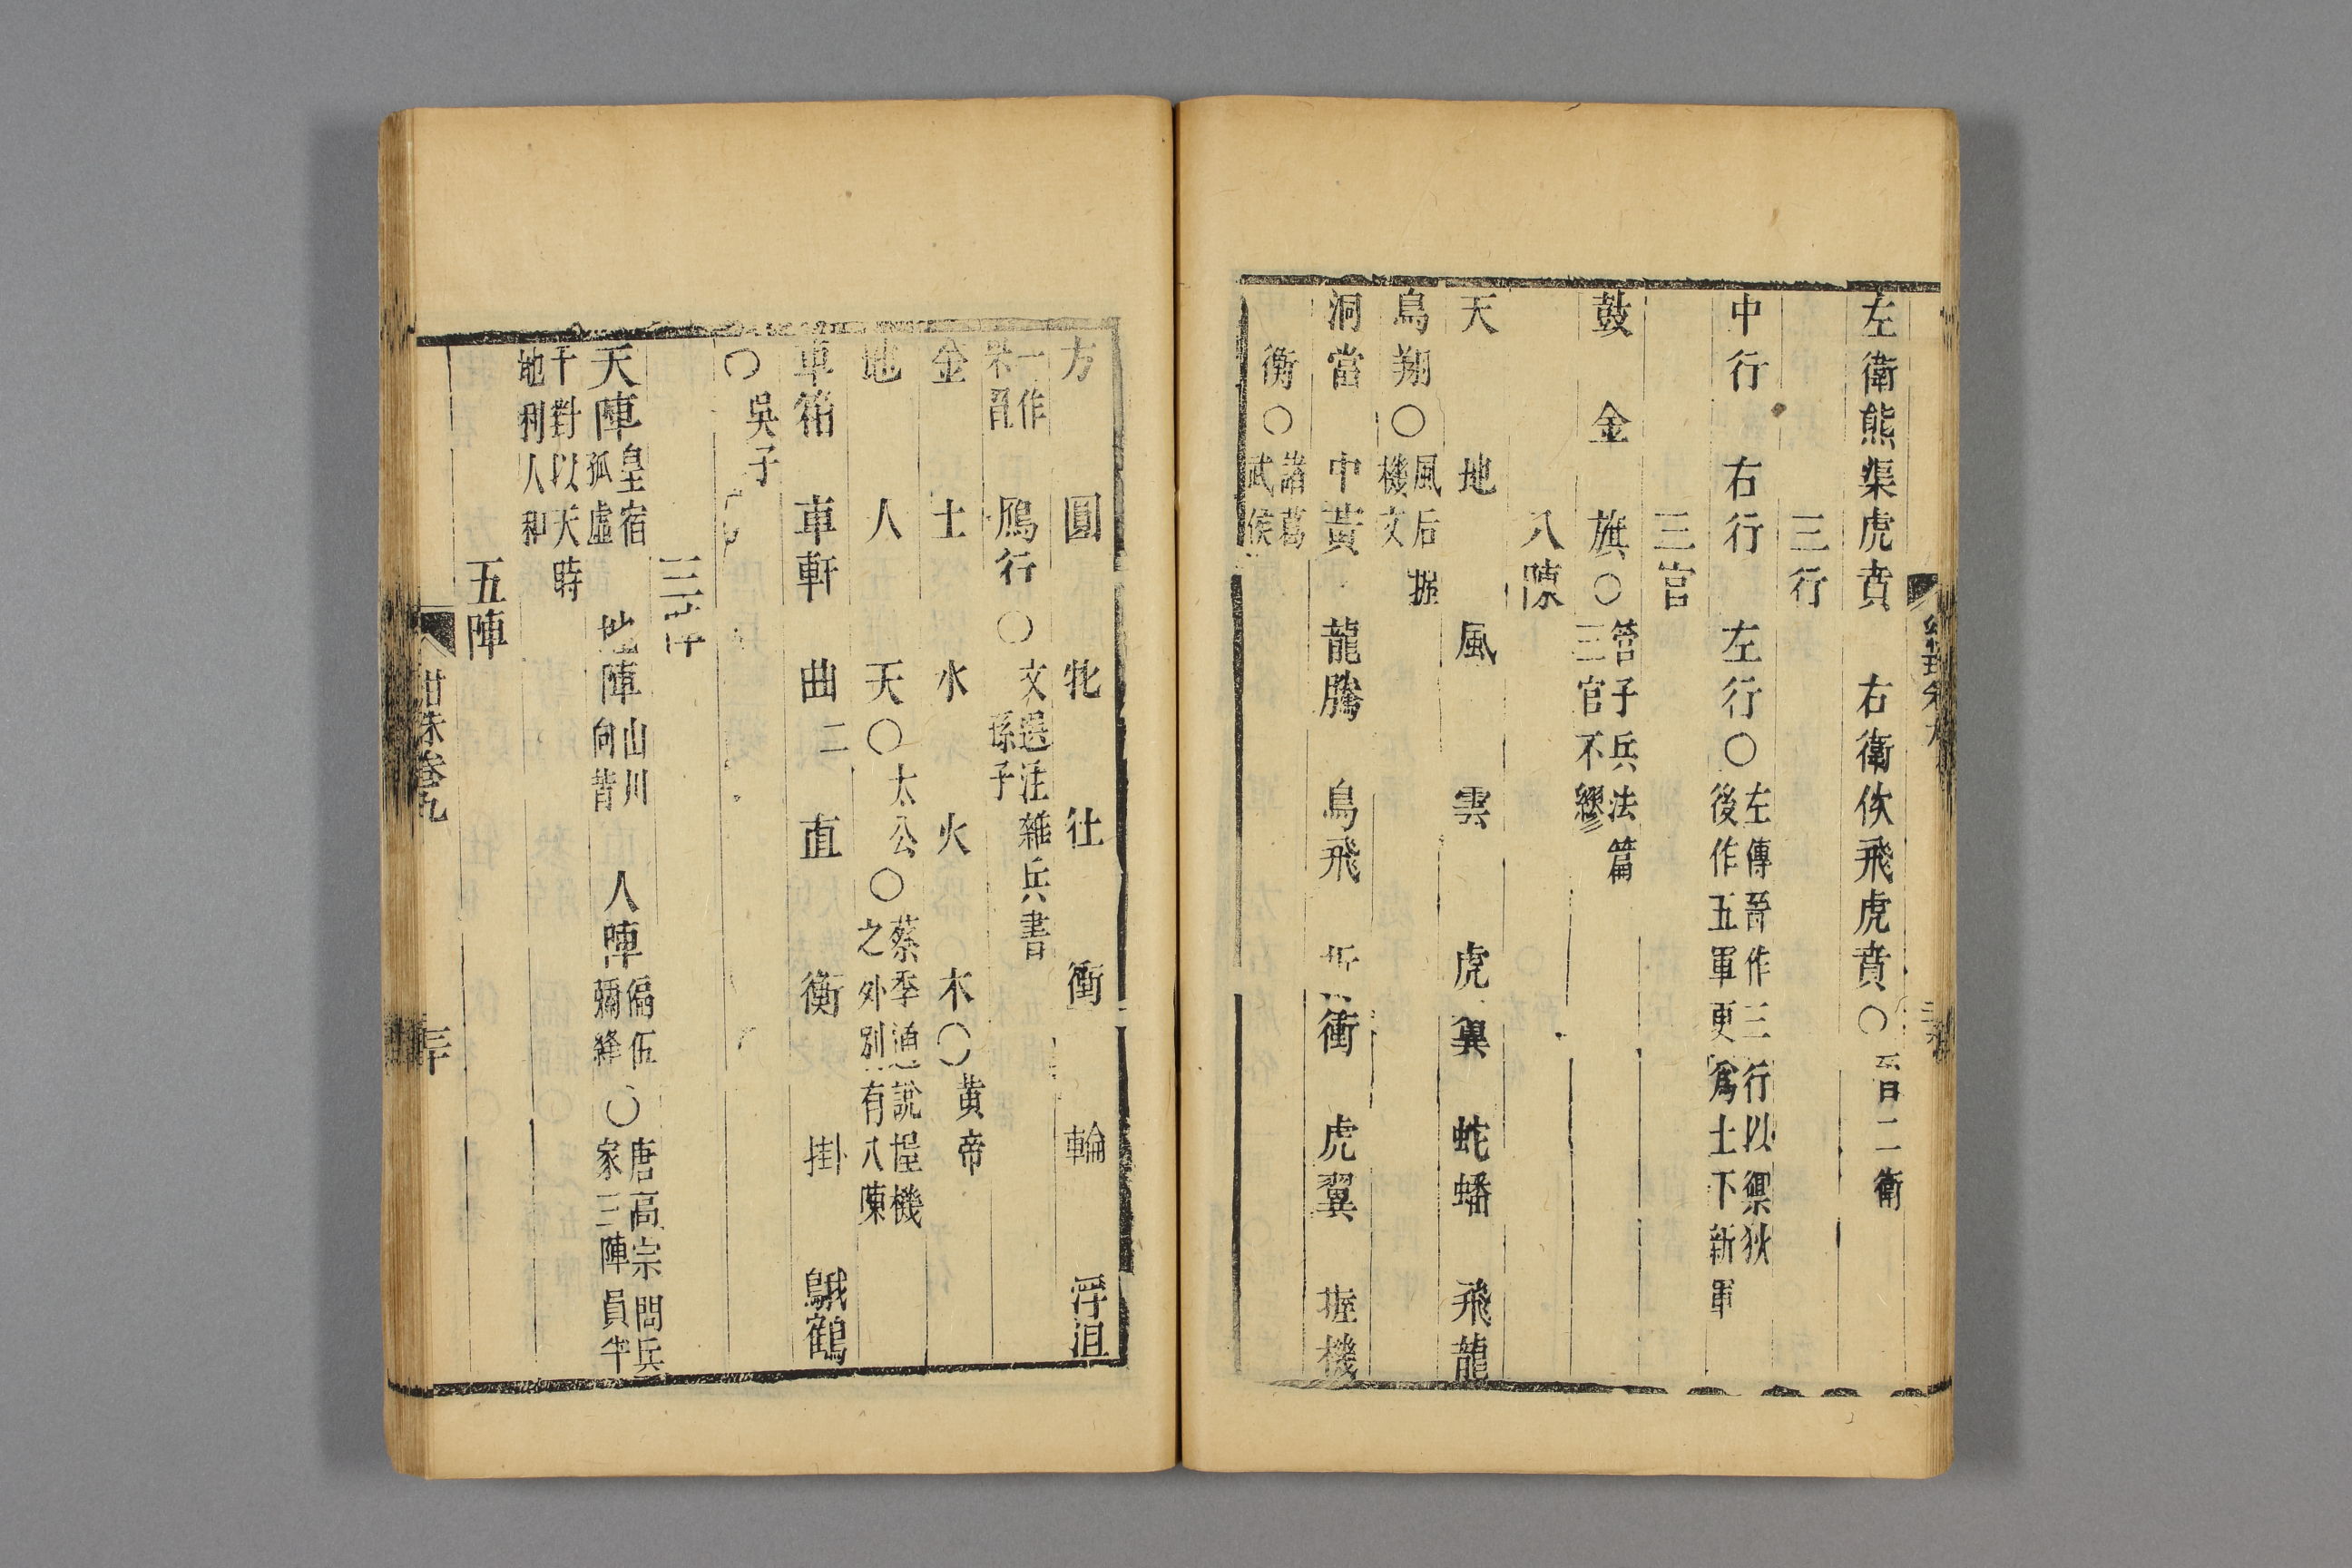 左衛熊渠虎賁　右衛佽飛虎賁○晉日二衛
三行
中行　右行　左行○左傳晉作三行以禦狄後作五軍更爲上下新軍
三官
鼓　金　旗○管子兵法篇三官不繆
八陳
天　地　風　雲　虎翼　蛇蟠　飛龍
鳥翔○風后握機文
洞當　中黃　龍騰　鳥飛　折衝　虎翼　握機
衡○諸葛武侯
方　圓　牝　牡　衝　輪　浮沮
一作罘罝　鴈行○文選注雜兵書孫子
金　土　水　火　木○黃帝
地　人　天○太公○蔡季通說握機之外別有八陳
車箱　車軒　曲二　直　衡　掛　鵝鶴
○吳子
三陣
天陣皇宿孤虛　地陣山川向背　人陣偏伍彌縫○唐高宗問兵家三陣員半
千對以天時地利人和
五陣
紺珠卷九
三十